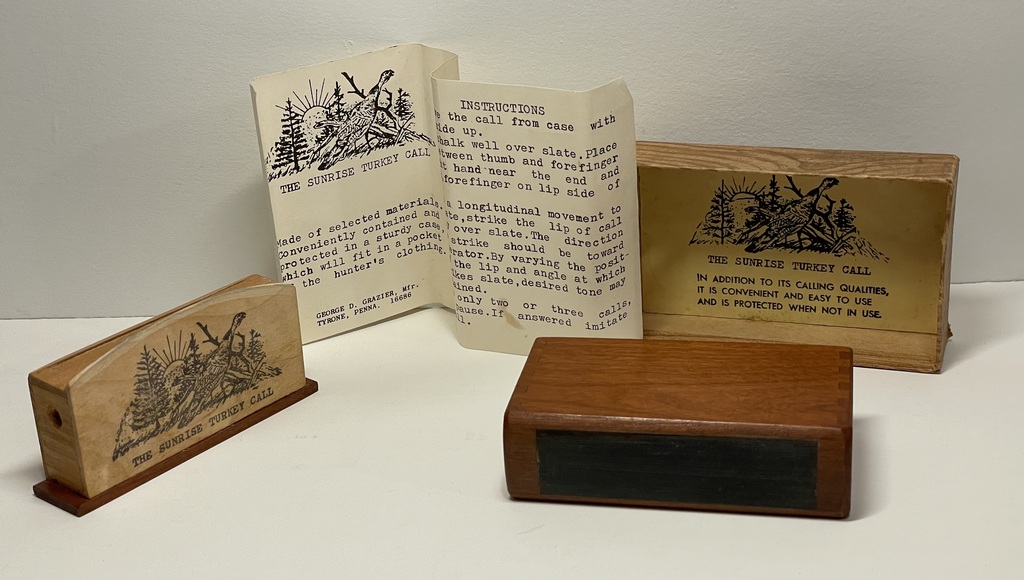 THE SUNRISE TURKEY CALL
Made of selected materials.
Conveniently contained and
protected in a sturdy case,
which will fit in a pocket
the hunter's clothing.
GEORGE D. GRAZIER, Mfr.
TYRONE, PENNA. 16686
INSTRUCTIONS
the call from case with
ide up.
halk well over slate.Place
tween thumb and forefinger
hand near the end and
forefinger on lip side of
a longitudinal movement to
te,strike the lip of call
over slate.The direction
strike should be toward
rator.By varying the posit-
the lip and angle at which
ikes slate,desired tone may
ained.
only two or three calls,
ause.If answered imitate
l.
THE SUNRISE TURKEY CALL
IN ADDITION TO ITS CALLING QUALITIES,
IT IS CONVENIENT AND EASY TO USE
AND IS PROTECTED WHEN NOT IN USE.
THE SUNRISE TURKEY CALL